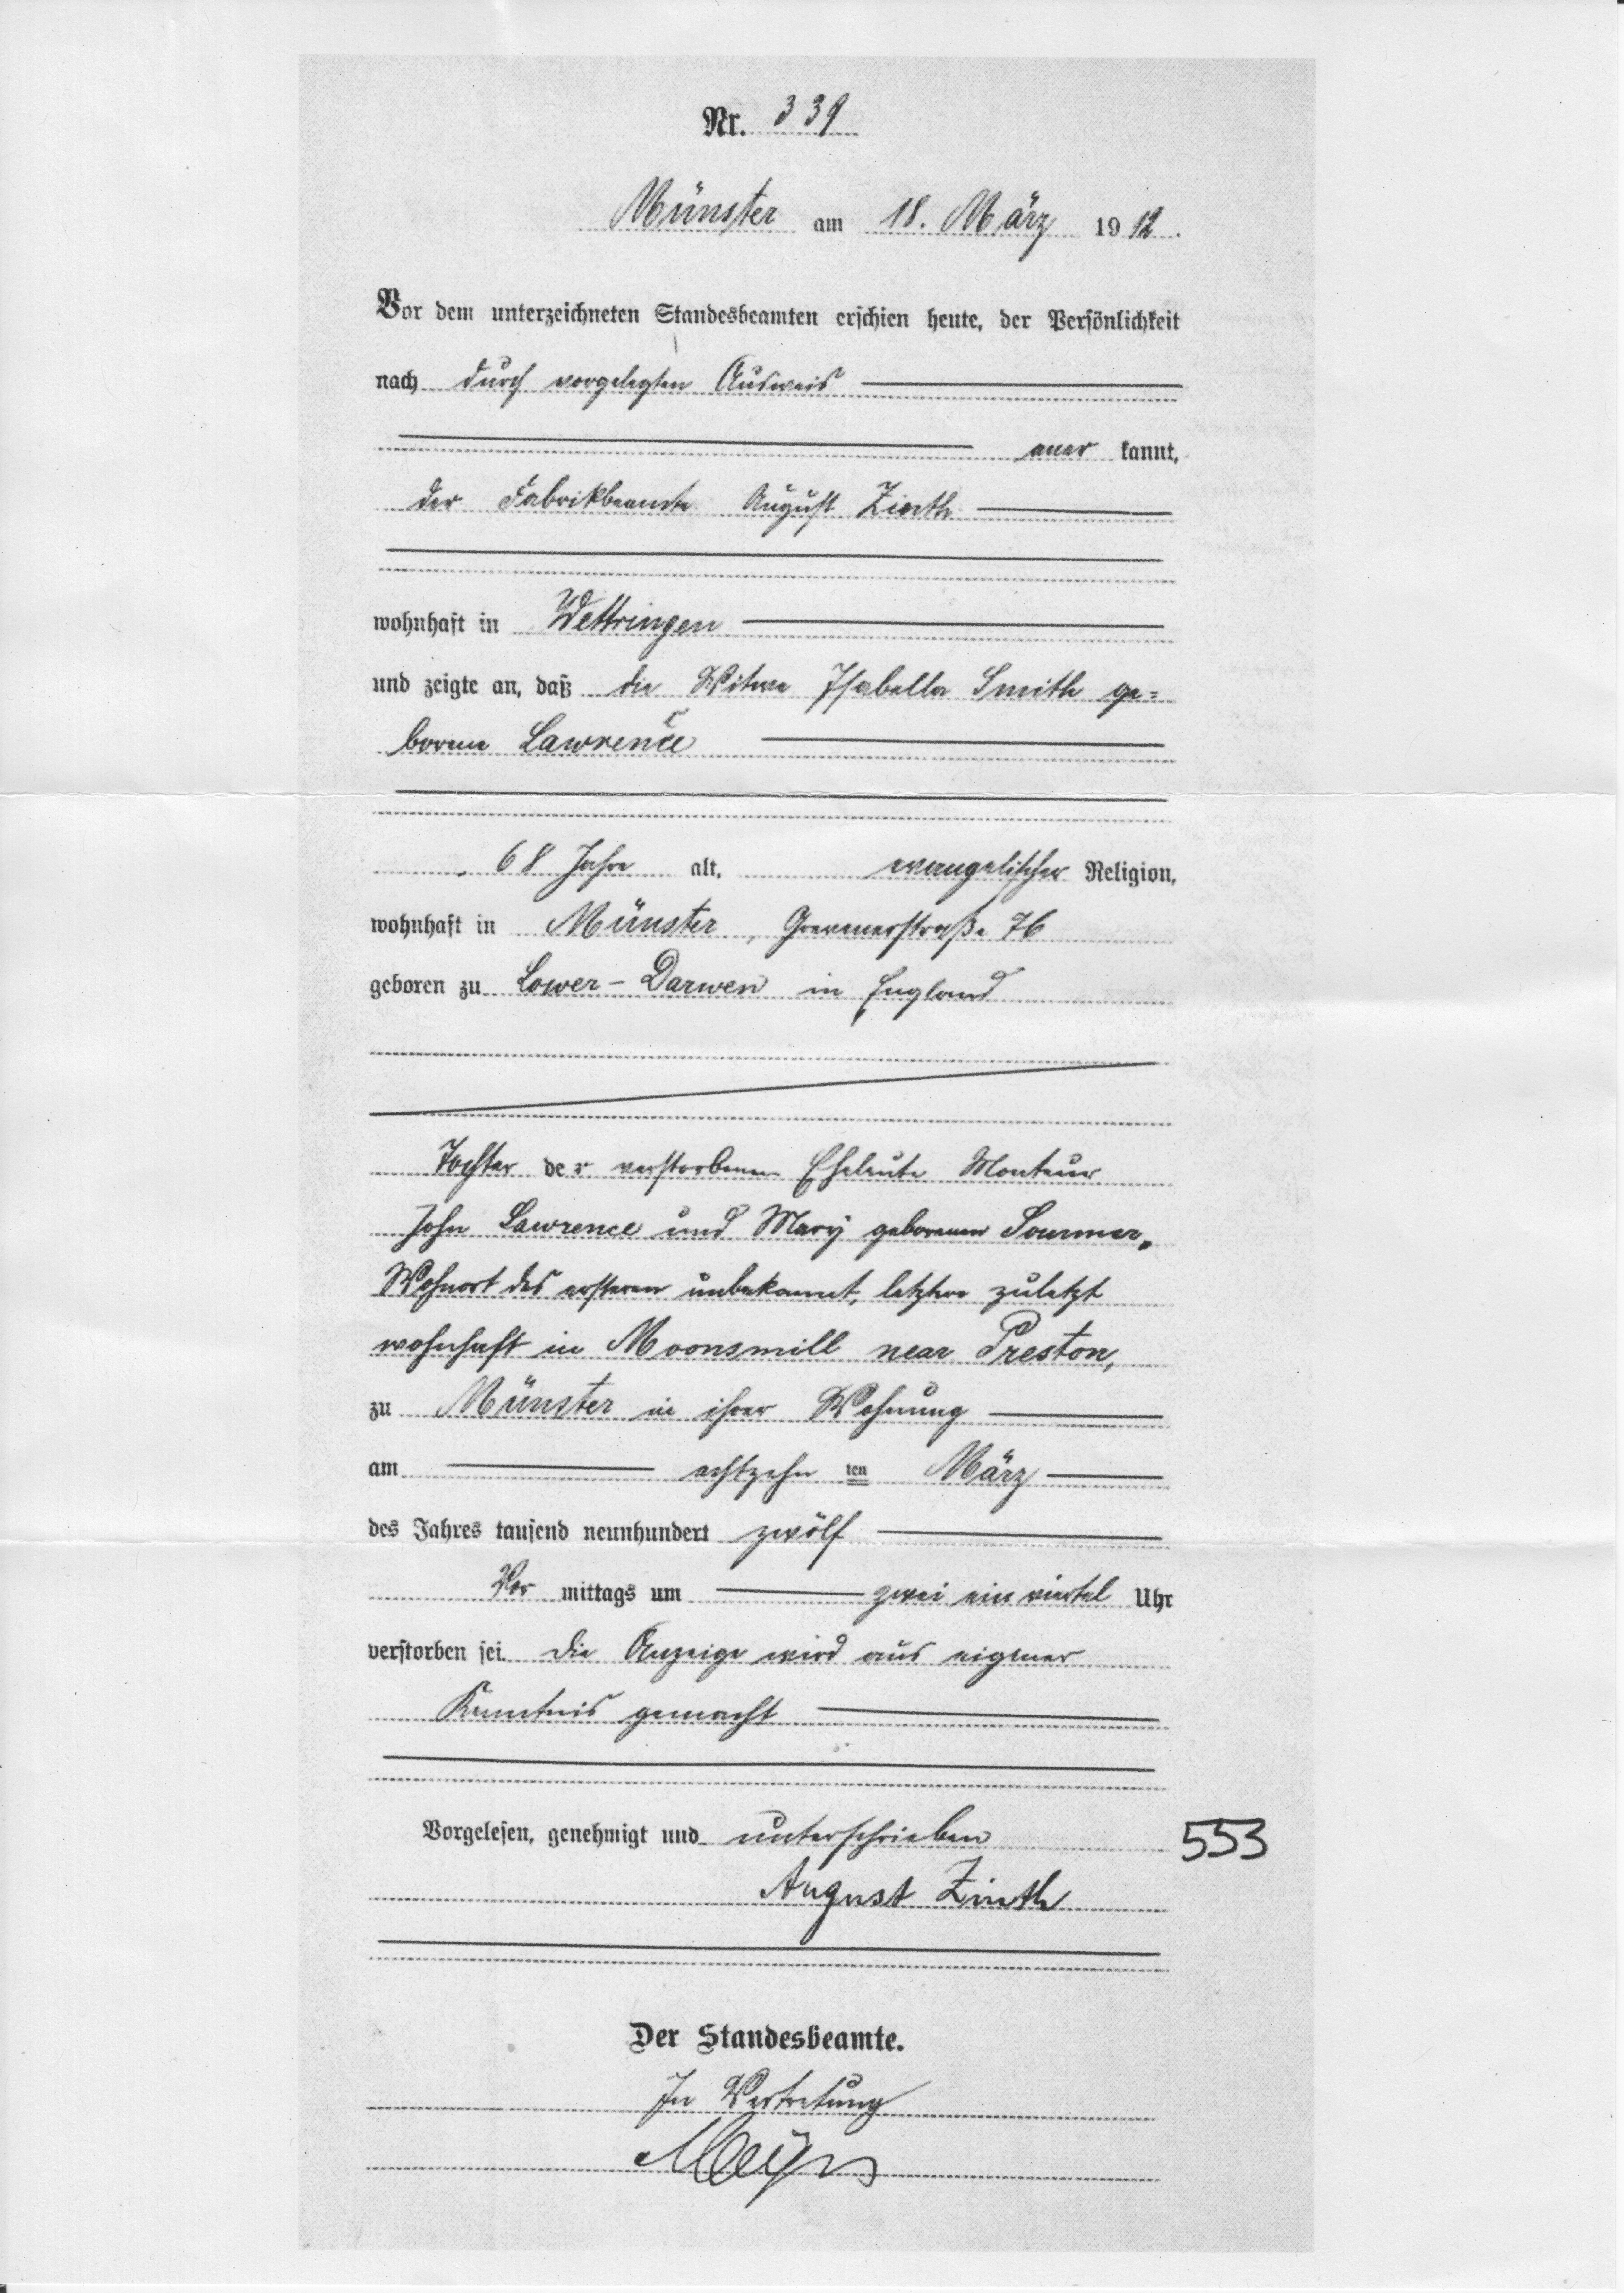 Nr. 339
Münster am 18. März 1912.
Vor dem unterzeichneten Standesbeamten erschien heute, der Persönlichkeit
nach durch vorgelegten Ausweis
aner kannt,
der Fabrikbeamte August Zinth
wohnhaft in Wettringen
und zeigte an, daß die Witwe Isabella Smith ge=
borene Lawrence
68 Jahre alt, evangelischer Religion,
wohnhaft in Münster, Grevenerstraße 76
geboren zu Lower-Darwen in England
Tochter der verstorbenen Eheleute Monteur
John Lawrence und Mary geborenen Sourner,
Wohnort des ersteren unbekannt, letztere zuletzt
wohnhaft in Moonsmill near Preston,
zu Münster in ihrer Wohnung
am achtzehn ten März
des Jahres tausend neunhundert zwölf
Vor mittags um zwei ein viertel Uhr
verstorben sei. Die Anzeige wird aus eigener
Kenntnis gemacht
Vorgelesen, genehmigt und unterschrieben
553
August Zinth
Der Standesbeamte.
In Vertretung